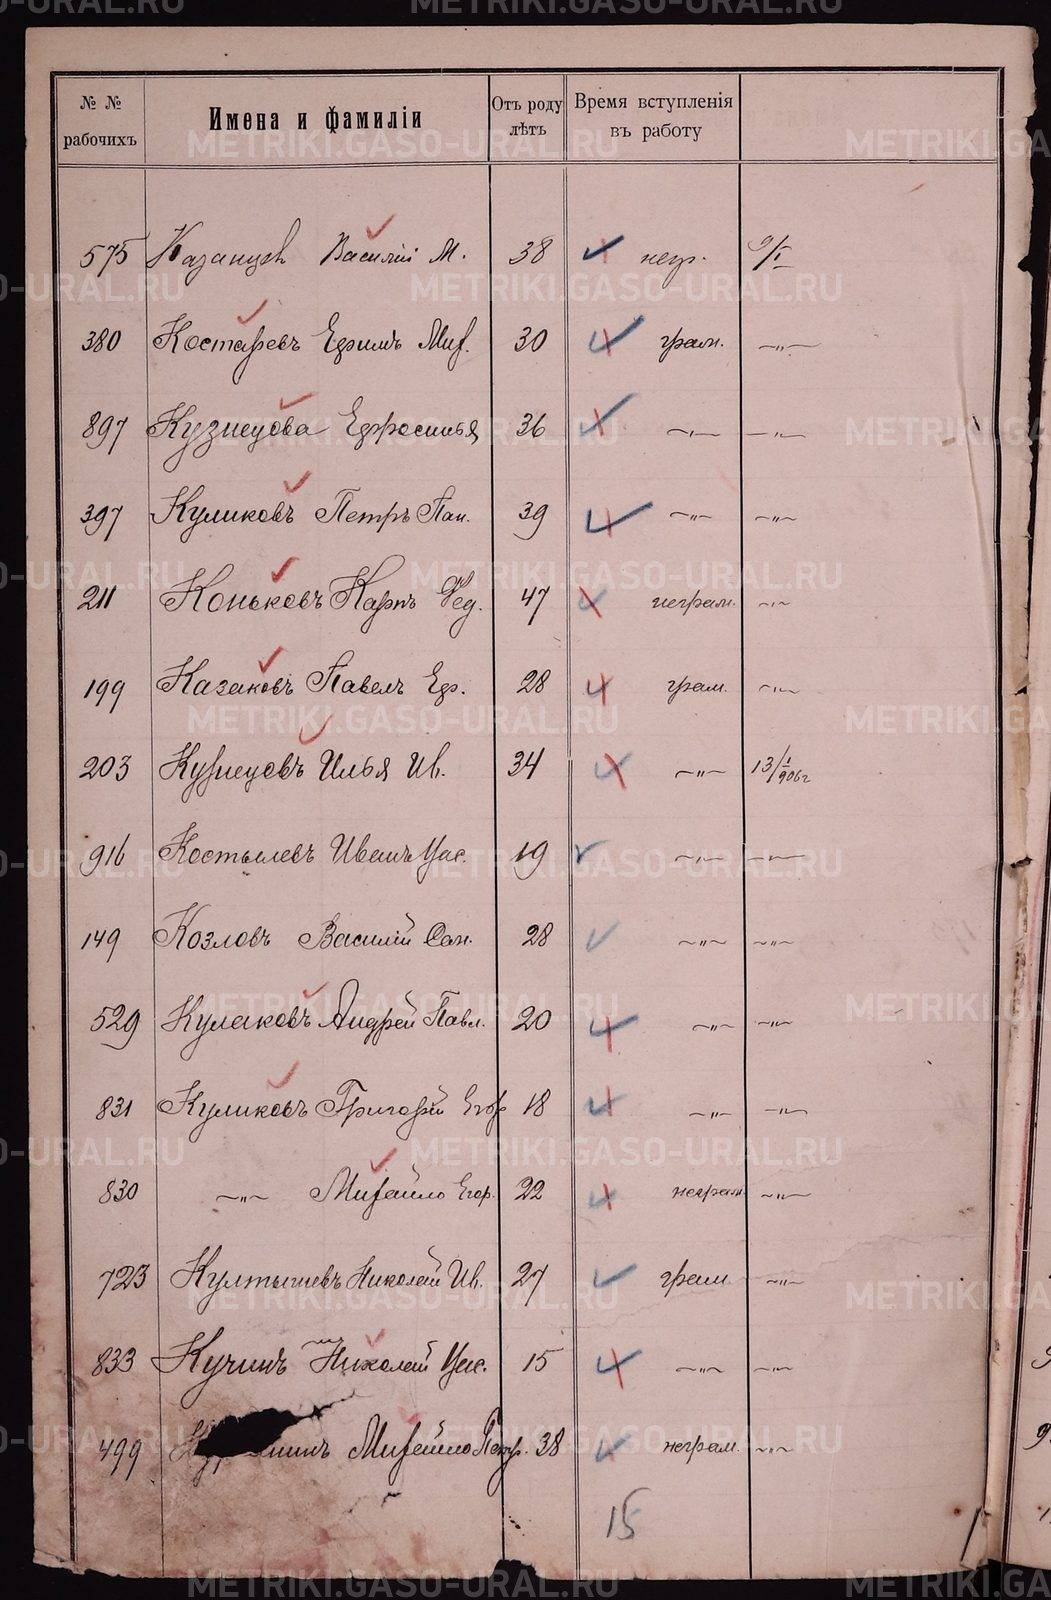 № № рабочихъ Имена и фамиліи Отъ роду лѣтъ Время вступленія въ работу
575 Казанцев Василій М. 38 негр. 9/I
380 Костаревъ Ефимъ Мих. 30 грам. —"—
897 Кузнецова Ефросинья 36 —"— —"—
397 Куликовъ Петръ Пап. 39 —"— —"—
211 Коньковъ Карпъ Фед. 47 неграм. —"—
199 Казаковъ Павелъ Еф. 28 грам. —"—
203 Кузнецовъ Илья Ив. 34 —"— 13/I 906г
916 Костылевъ Иванъ 19 —"— —"—
149 Козловъ Василій 28 —"— —"—
529 Кулаковъ Андрей Павл. 20 —"— —"—
831 Куликовъ Григорій Егор 18 —"— —"—
830 —"— Михайло Егор. 22 неграм. —"—
723 Култышевъ Николай Ив. 27 грам. —"—
833 Кучинъ Николай 15 —"— —"—
499 Михайло Петр. 38 неграм. —"—
15
METRIKI.GASO-URAL.RU